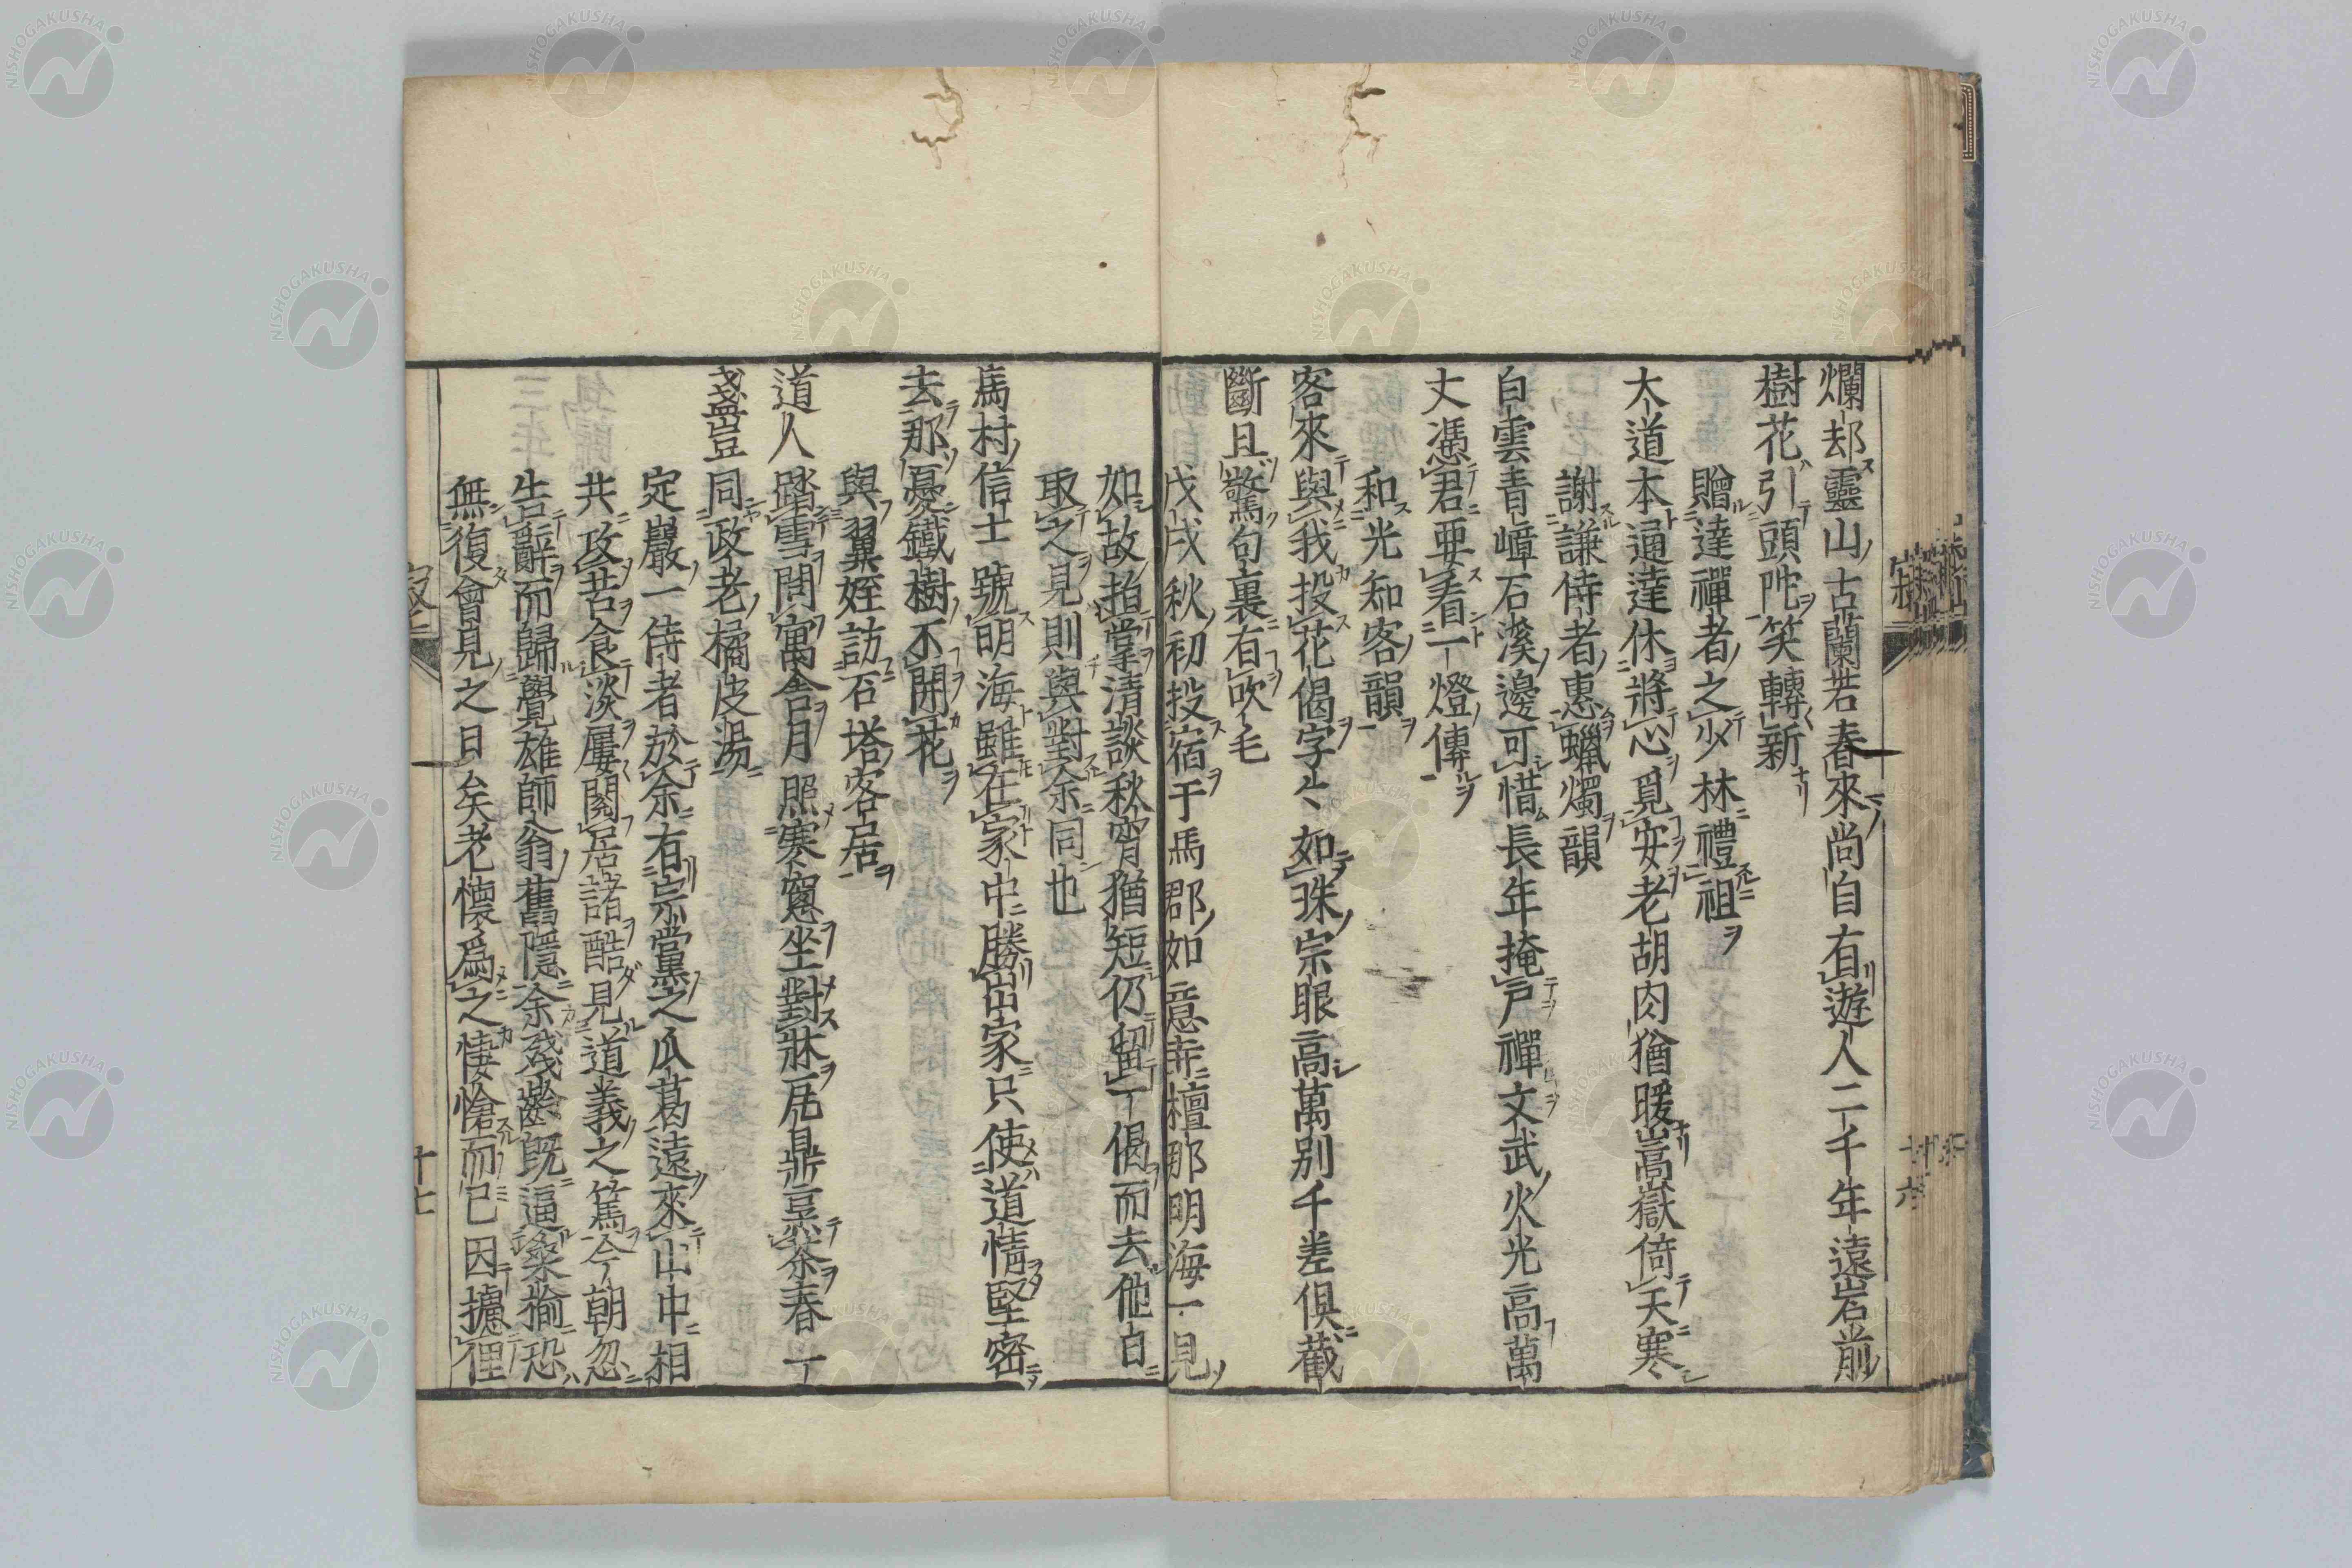 爛却靈山古蘭若春來尚自有遊人二千年遠岩前
樹花引頭陀笑轉新
贈達禪者之少林禮祖
大道本通達休將心覓安老胡肉猶暖嵩嶽倚天寒
謝謙侍者惠蠟燭韻
白雲青嶂石溪邊可惜長年掩戸禪文武火光高萬
丈憑君要看一燈傳
和光知客韻
客來與我投花偈字々如珠宗眼高萬別千差俱截
斷且驚句裏有吹毛
戊戌秋初投宿于馬郡如意寺檀那明海一見
如故拍掌清談秋宵猶短仍留一偈而去他白
取之見則與對余同也
馬村信士號明海雖在家中勝出家只使道情堅密
去那憂鐵樹不開花
與翼姪訪石塔客居
道人踏雪問寓舍月照寒窻坐對牀瓦鼎烹茶春一
盞豈同政老橘皮湯
定巖一侍者於余有宗黨之瓜葛遠來山中相
共攻苦食淡屢閱居諸酷見道義之篤今朝忽
告辭而歸覺雄師翁舊隱余殘齡既逼桑揄恐
無復會見之日矣老懷爲之悽愴而已因攄俚
十七
NISHOGAKUSHA